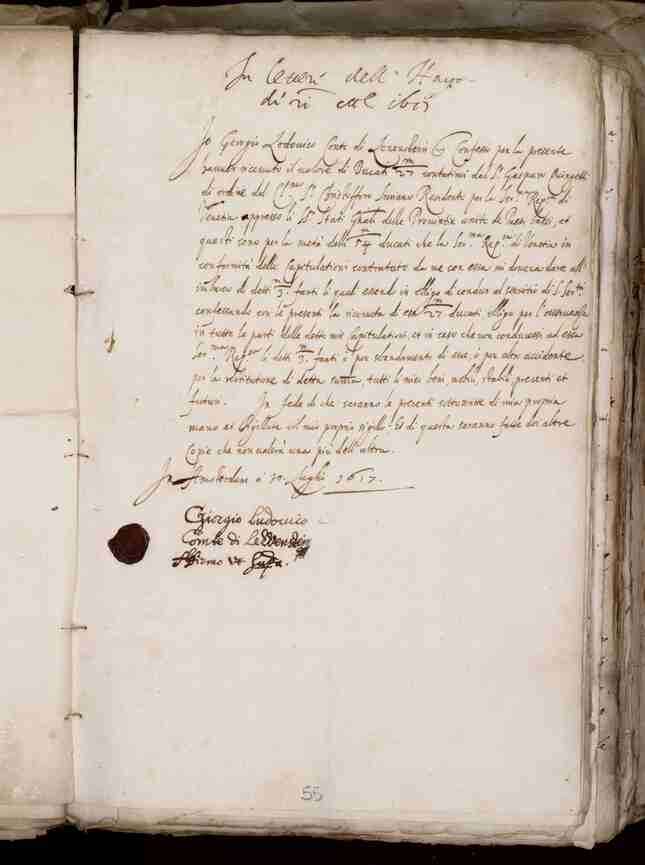 In lettere dell' Haya
di
Io Giorgio Lodovico Conte di Levenstein Confesso per la presente
haver ricevuto il valore di Ducati 27/m contatimi dal S.r Gasparo
di ordine del Cl.mo S.r Christoffor Suriano Residente per la Ser.ma Rep.ca di
Venetia appresso li SS.ri Stati Gnali delle Provintie unite de Paesi bassi, et
questi sono per la metà delli 54/m ducati che la Ser.ma Rep.ca di Venetia in
conformità delle Capitulationi contrattate da me con essa mi doveva dare all'
imbarco di detti 3/m fanti li quali essendo in obligo di condur al servitio di S. Ser.tà
confessando con le presenti la ricevuta di essi 27/m ducati obligo per l'osservanza
in tutte le parti delle dette mie Capitulationi, et in caso che non conducessi ad essa
Ser.ma Rep.ca li detti 3/m fanti ò per mancamento di essa, ò per altro accidente
per la restitutione di detta summa, tutti li miei beni mobili, stabili, presenti et
futuri. In fede di che saranno le presenti sottoscritte di mia propria
mano et sigillate col mio proprio sigillo: Et di questa saranno fatte doi altre
Copie che non valerà una più dell'altra.
In Amsterdam à Luglio 1617.
Giorgio Ludovico
Comte di Lewenstein
Affermo ut supra.
55